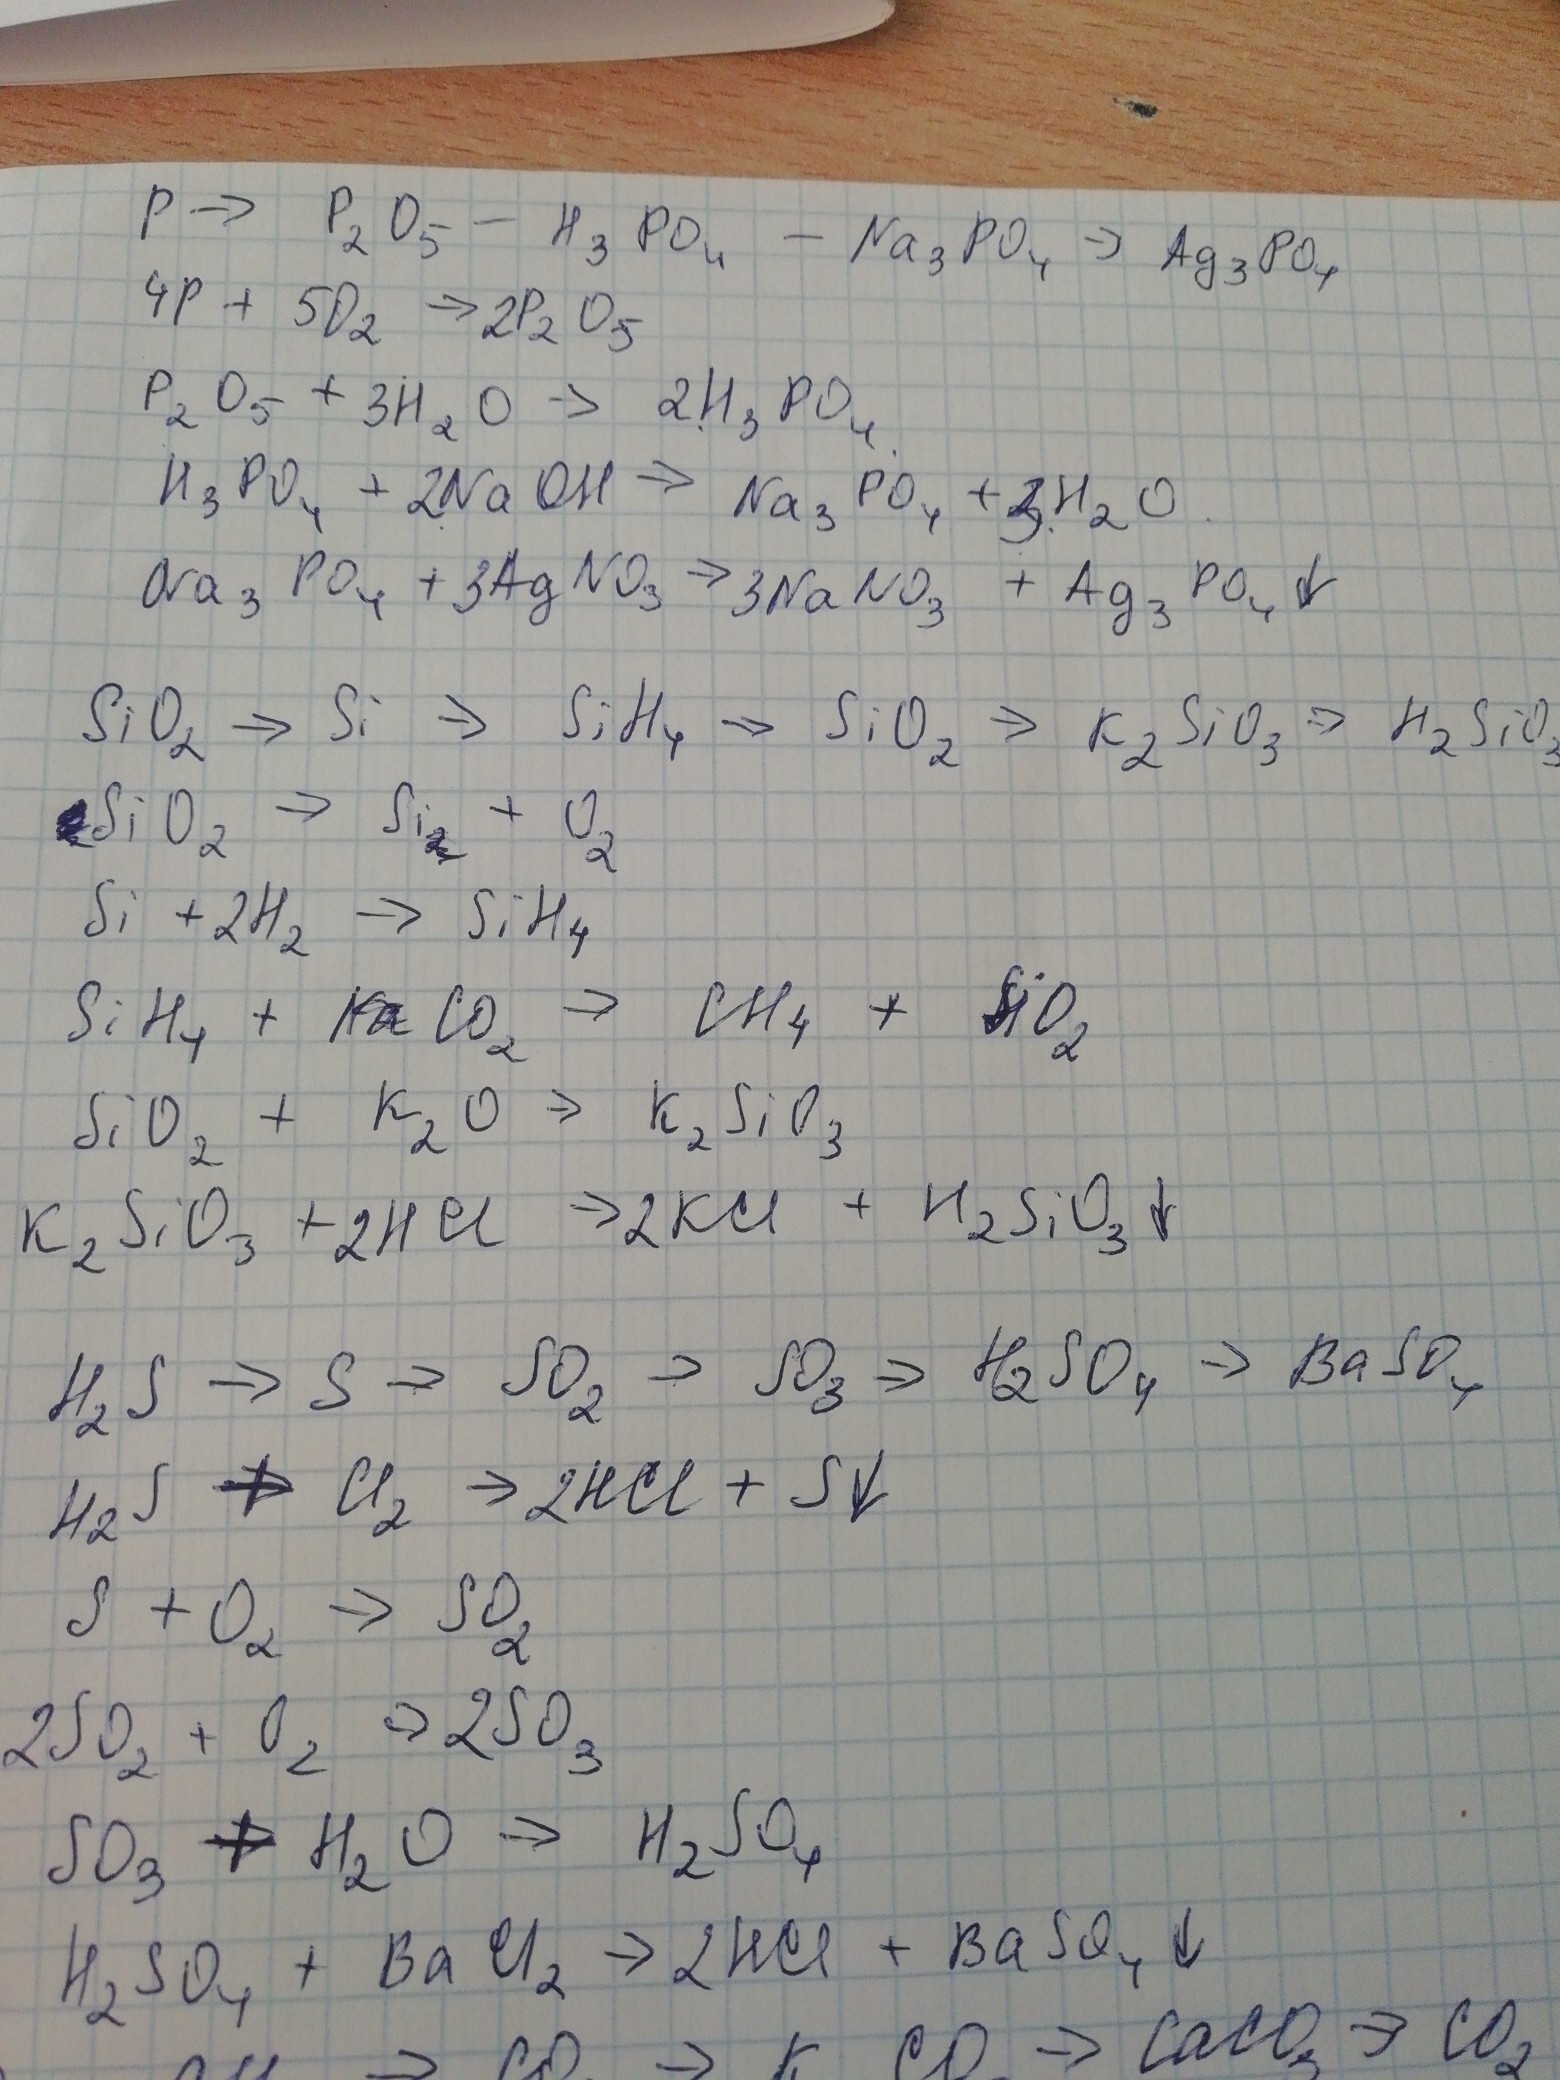 P → P₂O₅ — H₃PO₄ — Na₃PO₄ → Ag₃PO₄
4P + 5O₂ → 2P₂O₅
P₂O₅ + 3H₂O → 2H₃PO₄
H₃PO₄ + 2NaOH → Na₃PO₄ + 3H₂O
Na₃PO₄ + 3AgNO₃ → 3NaNO₃ + Ag₃PO₄↓
SiO₂ → Si → SiH₄ → SiO₂ → K₂SiO₃ → H₂SiO₃
SiO₂ → Si + O₂
Si + 2H₂ → SiH₄
SiH₄ + CO₂ → CH₄ + SiO₂
SiO₂ + K₂O → K₂SiO₃
K₂SiO₃ + 2HCl → 2KCl + H₂SiO₃↓
H₂S → S → SO₂ → SO₃ → H₂SO₄ → BaSO₄
H₂S + Cl₂ → 2HCl + S↓
S + O₂ → SO₂
2SO₂ + O₂ → 2SO₃
SO₃ + H₂O → H₂SO₄
H₂SO₄ + BaCl₂ → 2HCl + BaSO₄↓
→ CO → K CO → CaCO₃ → CO₂